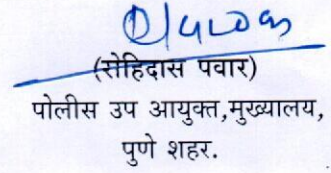 (रोहिदास पवार)
पोलीस उप आयुक्त,मुख्यालय,
पुणे शहर.